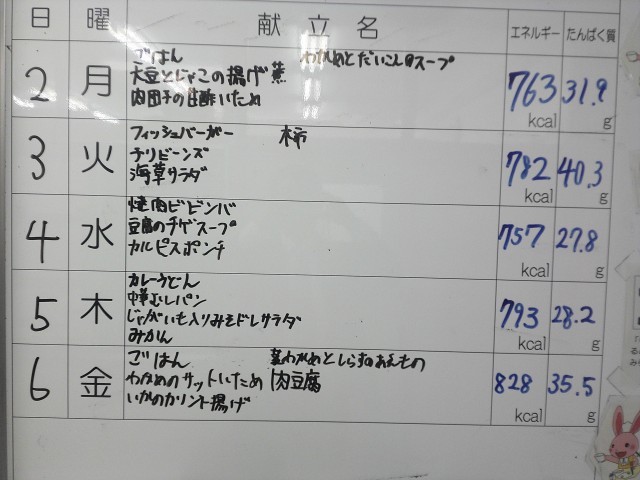 日 曜 献立名 エネルギー たんぱく質
2 月 ごはん わかめとだいこんのスープ
大豆とじゃこの揚げ煮
肉団子の甘酢いため
763 kcal 31.9 g
3 火 フィッシュバーガー 柿
チリビーンズ
海草サラダ
782 kcal 40.3 g
4 水 焼肉ビビンバ
豆腐のチゲスープ
カルピスポンチ
757 kcal 27.8 g
5 木 カレーうどん
中華むしパン
じゃがいも入りみそドレサラダ
みかん
793 kcal 28.2 g
6 金 ごはん 茎わかめとしらすのあえもの
わかめのサットいため 肉豆腐
いかのかリント揚げ
828 kcal 35.5 g